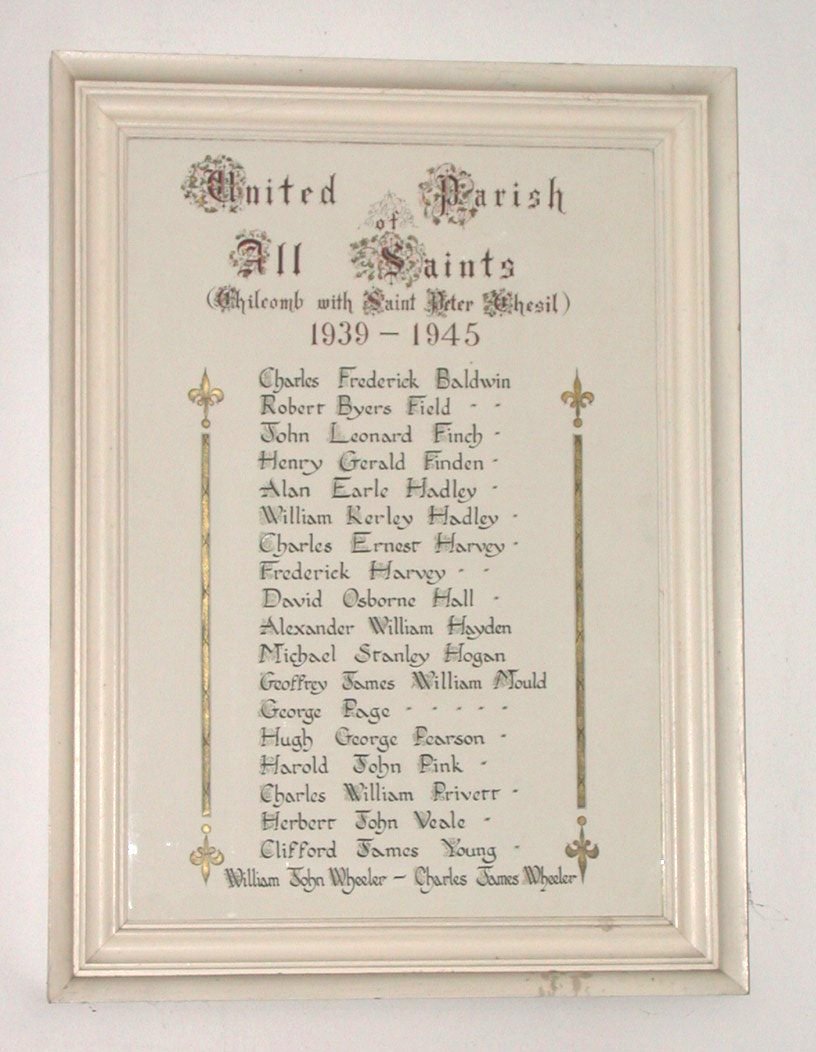 United Parish
of
All Saints
(Chilcomb with Saint Peter Chesil)
1939 – 1945
Charles Frederick Baldwin
Robert Byers Field - -
John Leonard Finch -
Henry Gerald Finden -
Alan Earle Hadley -
William Kerley Hadley -
Charles Ernest Harvey -
Frederick Harvey - -
David Osborne Hall -
Alexander William Hayden
Michael Stanley Hogan
Geoffrey James William Mould
George Page - - - - -
Hugh George Pearson -
Harold John Pink -
Charles William Privett -
Herbert John Veale -
Clifford James Young -
William John Wheeler – Charles James Wheeler